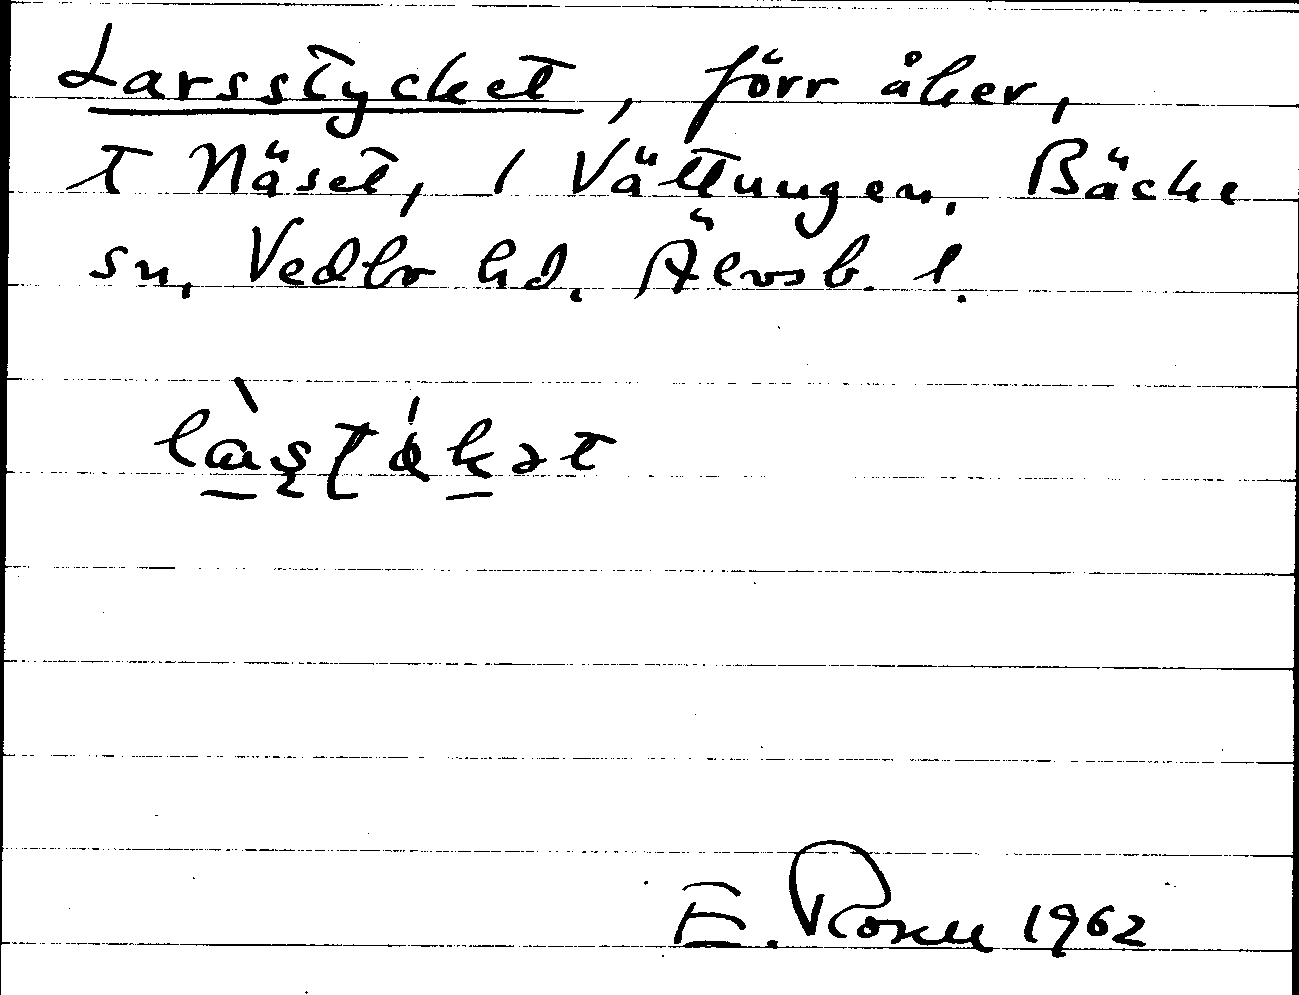 Larsstycket, förr åker,
t Näset, 1 Vättungen. Bäcke
sn, Vedbo hd. Älvsb. l.
E. Rosell 1962